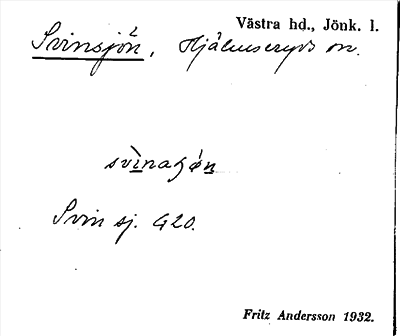 Västra hd., Jönk. l.
Svinsjön, Hjälmseryds sn.
Svinsj. G20.
Fritz Andersson 1932.